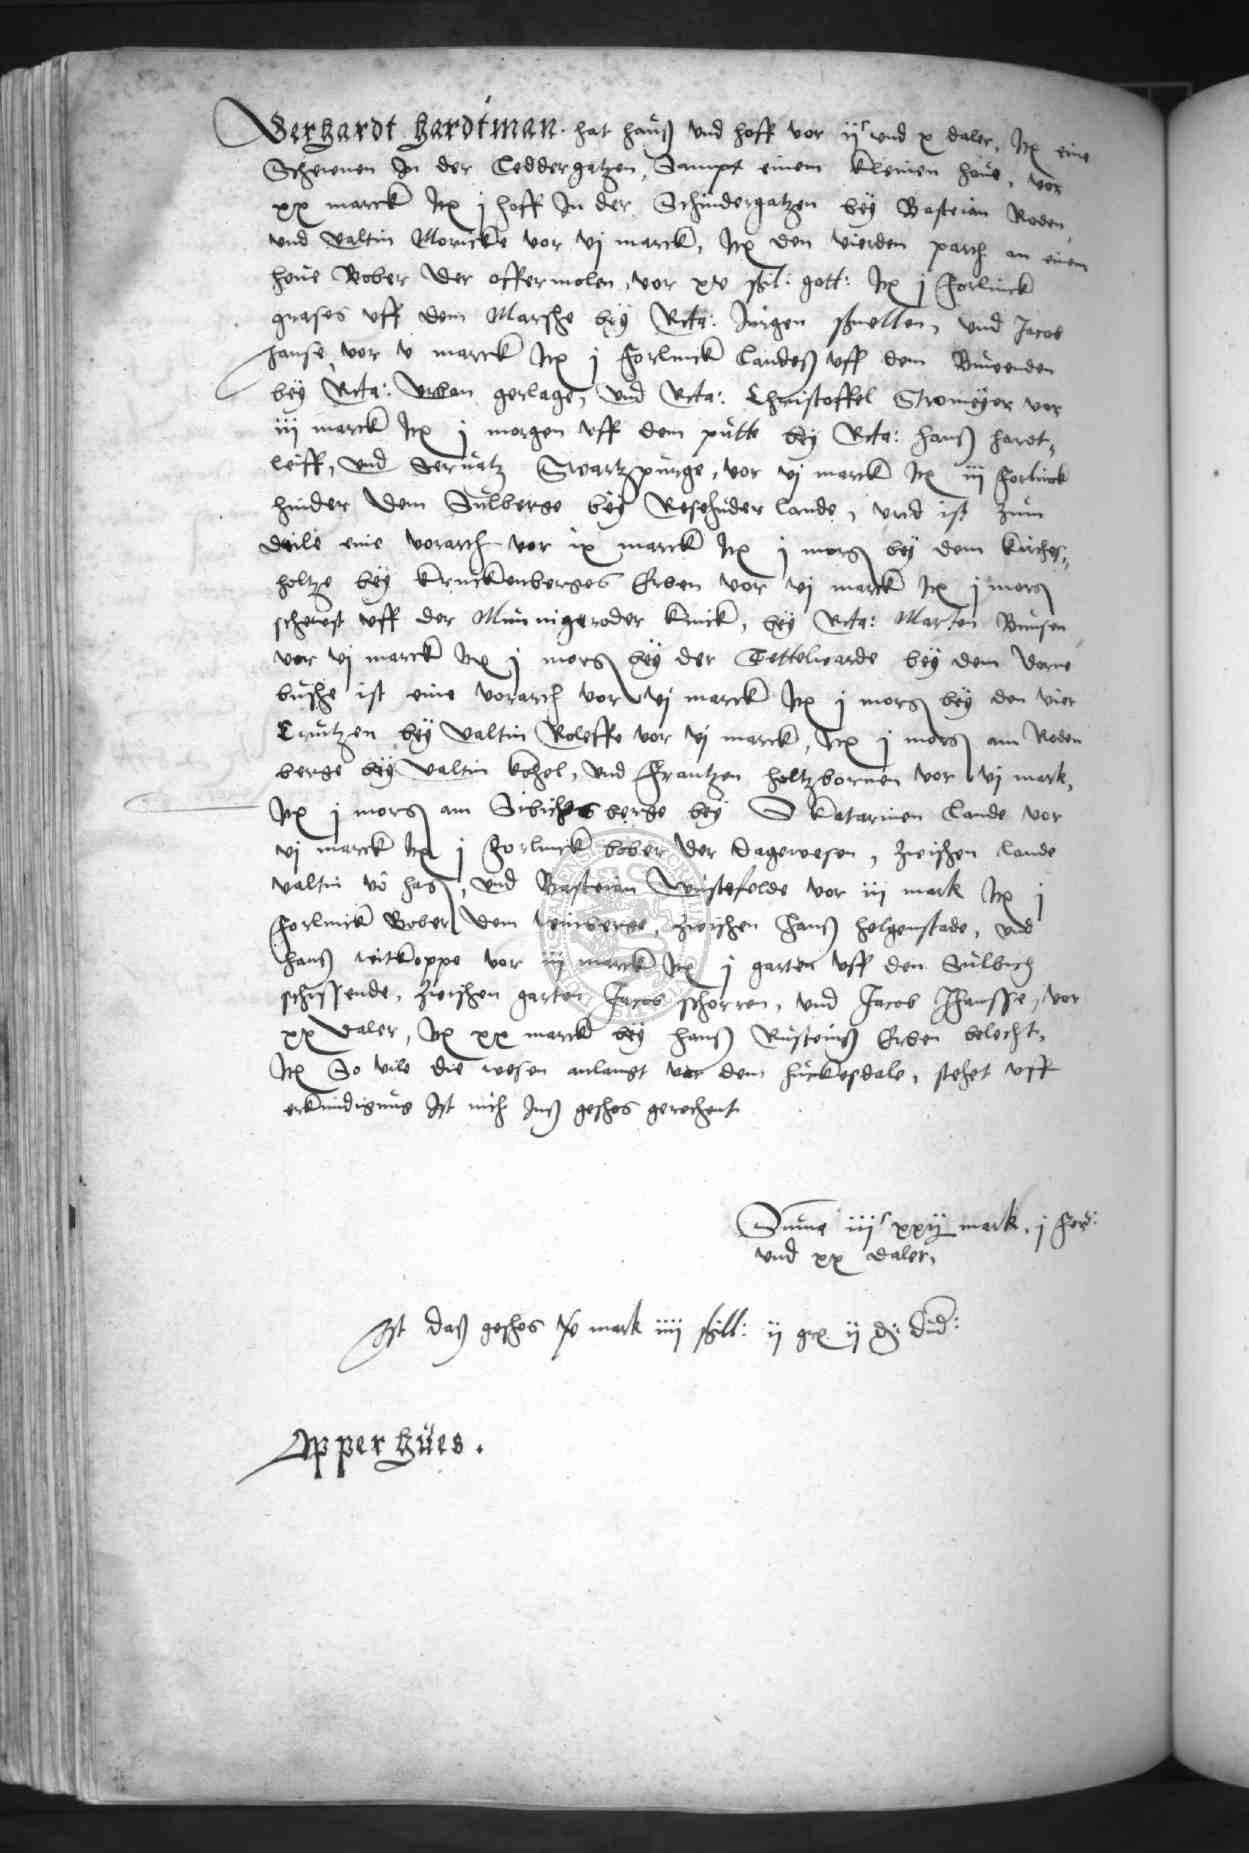 Gerhardt Hardtman. hat hauß vnd hoff vor ijc vnd x daler, Itx eine
Schewnen In der Leddergatzen, Sampt einem kleinen hove, vor
xx marck Itx j hoff In der Schindergatzen beÿ Basteian Roden
vnd valtin Moricke vor vj marck, Itx den vierden parth an einem
hove Bober der offermolen, vor xv schil: gott: Itx j Forlinck
grases vff dem Marsche beÿ Rcta: Jurgen schnellen, vnd Jacob
Hanse, vor v marck Itx j Forlinck Landeß vff dem
beÿ Rcta: Urban gerlage, vnd Rcta: Christoffel Stromeÿer vor
iij marck Itx j morgen vff dem putte beÿ Rcta: Hanß hardt,,
leiff, vnd Servatz Swartzpurge, vor vj marck Itx iij Forlinck
hinder dem Sulberge beÿ Lande, vnd ist zum
deile eine vorarth vor ix marck Itx j morg beÿ dem kirches,,
holtze beÿ kruckenberges Erben vor vj marck Itx j morg
scheust vff der Minnigeroder knick, beÿ Rcta: Marten Bunsen
vor vj marck Itx j morg beÿ der Tettelwarde beÿ dem dorne
busche ist eine vorarth vor vj marck Itx j morg beÿ den vier
Crutzen beÿ valtin Roleffe vor vj marck, Itx j morg am Roden
berge beÿ valtin kohel, vnd Frantzen holtzbornen vor vj mark,
Itx j morg am Sibichesberge beÿ S katarinen Lande vor
vj marck Itx j Forlinck bober der dagewesen, zwischen Lande
valtin vō hag, vnd Basteian Wustefelde vor iij mark Itx j
Forlinck Bober dem weinberge, zwischen Hanß helgenstade, vnd
Hanß witkoppe vor iij marck Itx j garten vff den Sulbich
schissende, zwischen garten Jacob schorren, vnd Jacob Hansse, vor
xx daler, Itx xx marck beÿ Hanß Rusteinß Erben belecht,
Itx So vile die wesen anlangt vor dem huckesdale, stehet vff
erkundigung Ist nich Inß geschos gerechent

Summe iijc xxij mark, j Ferd:
vnd xx daler,
Ist daß geschos mark iiij schill: ij gr ij
Apperhues.